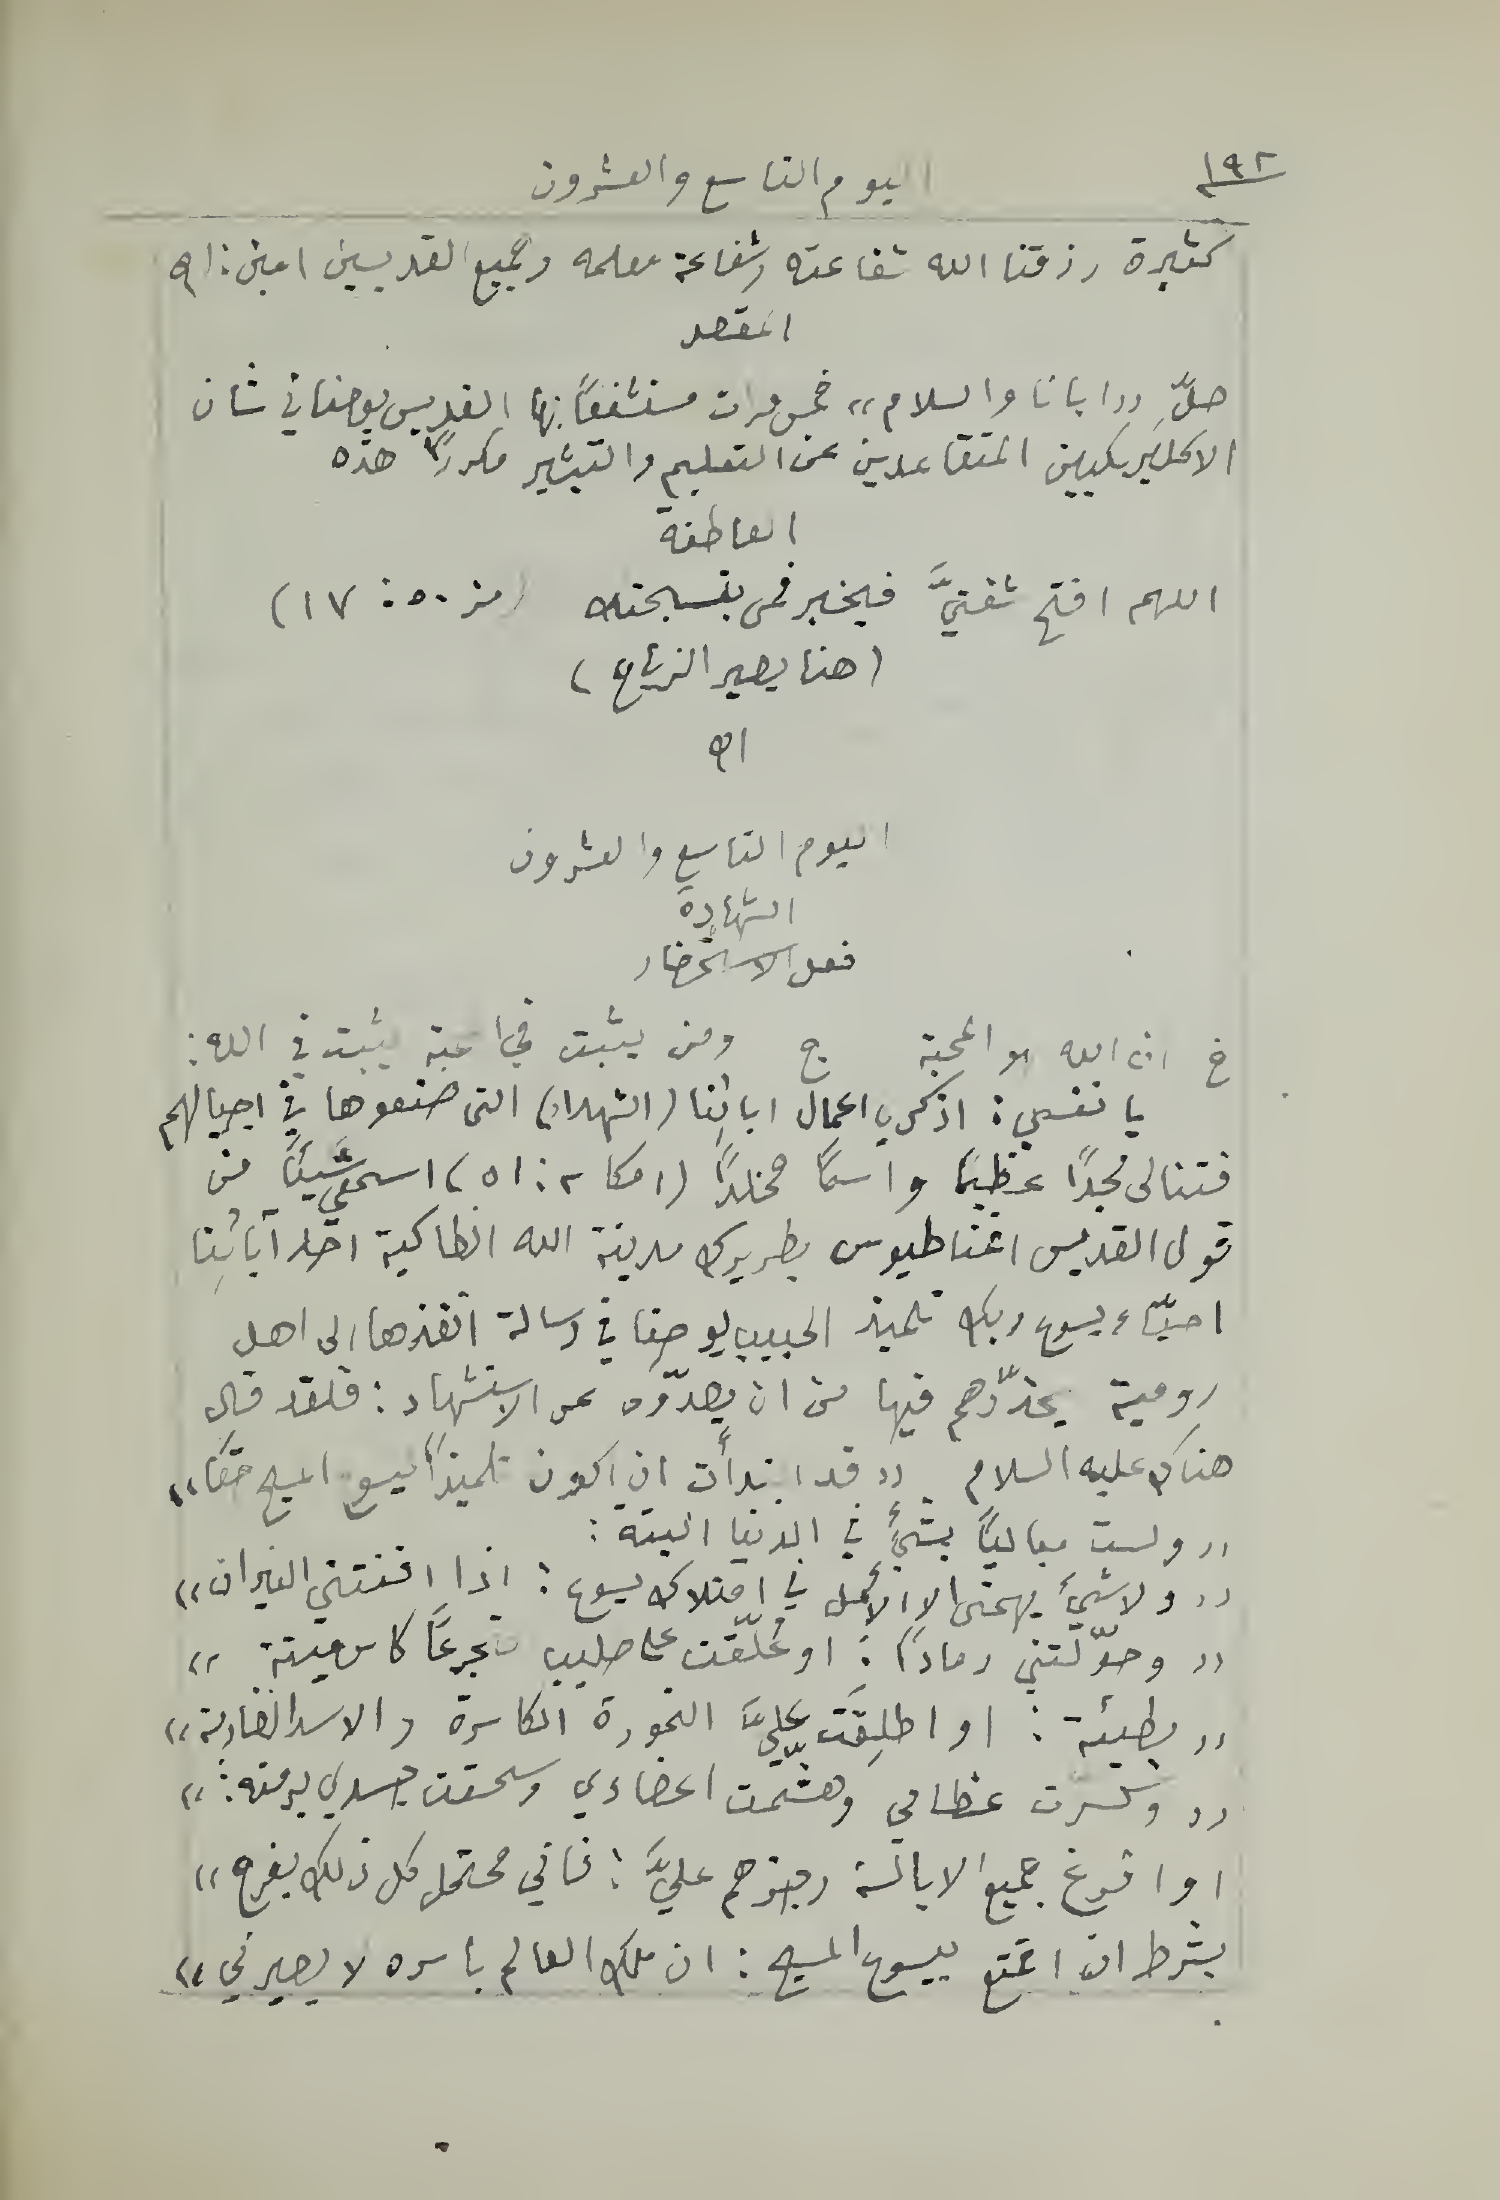 ١٩٢
اليوم التاسع والعشرون
كثيرة رزقنا الله شفاعته وشفاعة معلمه وجميع القديسين امين: اه
المقصد
صلّ "ابانا والسلام" خمس مرات مستشفعًا بها القديس يوحنا في شان
الاكليريكيين المتقاعدين عن التعليم والتبشير مكررًا هذه
العاطفة
اللهم افتح شفتيَّ فيخبر فمي بتسبحتك (مز ٥٠: ١٧)
(هنا يصير الزياح)
اه
اليوم التاسع والعشرون
الشهادة
فعل الاستحضار
خ ان الله هو المحبة ج ومن يثبت في المحبة يثبت في الله:
يا نفسي: اذكري اعمال ابائنا (الشهداء) التي صنعوها في اجيالهم
فتنالي مجدًا عظيمًا واسمًا مخلدًا (١ مكا ٢: ٥١) اسمعي شيئًا من
قول القديس اغناطيوس بطريرك مدينة الله انطاكية احد آبائنا
احبّاء يسوع ربك تلميذ الحبيب يوحنا في رسالة انفذها الى اهل
رومية يحذّرهم فيها من ان يصدّوه عن الاستشهاد: فلقد قال
هناك عليه السلام "قد ابتدأت ان اكون تلميذًا ليسوع المسيح حقًا"
"ولست مباليًا بشيءٍ في الدنيا البتة:
"ولا شيءَ يهمني الا الأمل في امتلاك يسوع: اذا افنتني النيران"
"وحوّلتني رمادًا: او عُلّقت على صليب متجرعًا كاس ميتة"
"بطيئة: او اطلِقَت عليَّ النمورة الكاسرة والاسد الضارية"
"وكسّرت عظامي وهشّمت اعضاءي وسحقت جسدي برمته:"
او افرغ جميع الابالسة رجزهم عليَّ: فاني محتمل كل ذلك بفرح"
بشرط ان اتمتع بيسوع المسيح: ان ملك العالم باسره لا يصيرني"